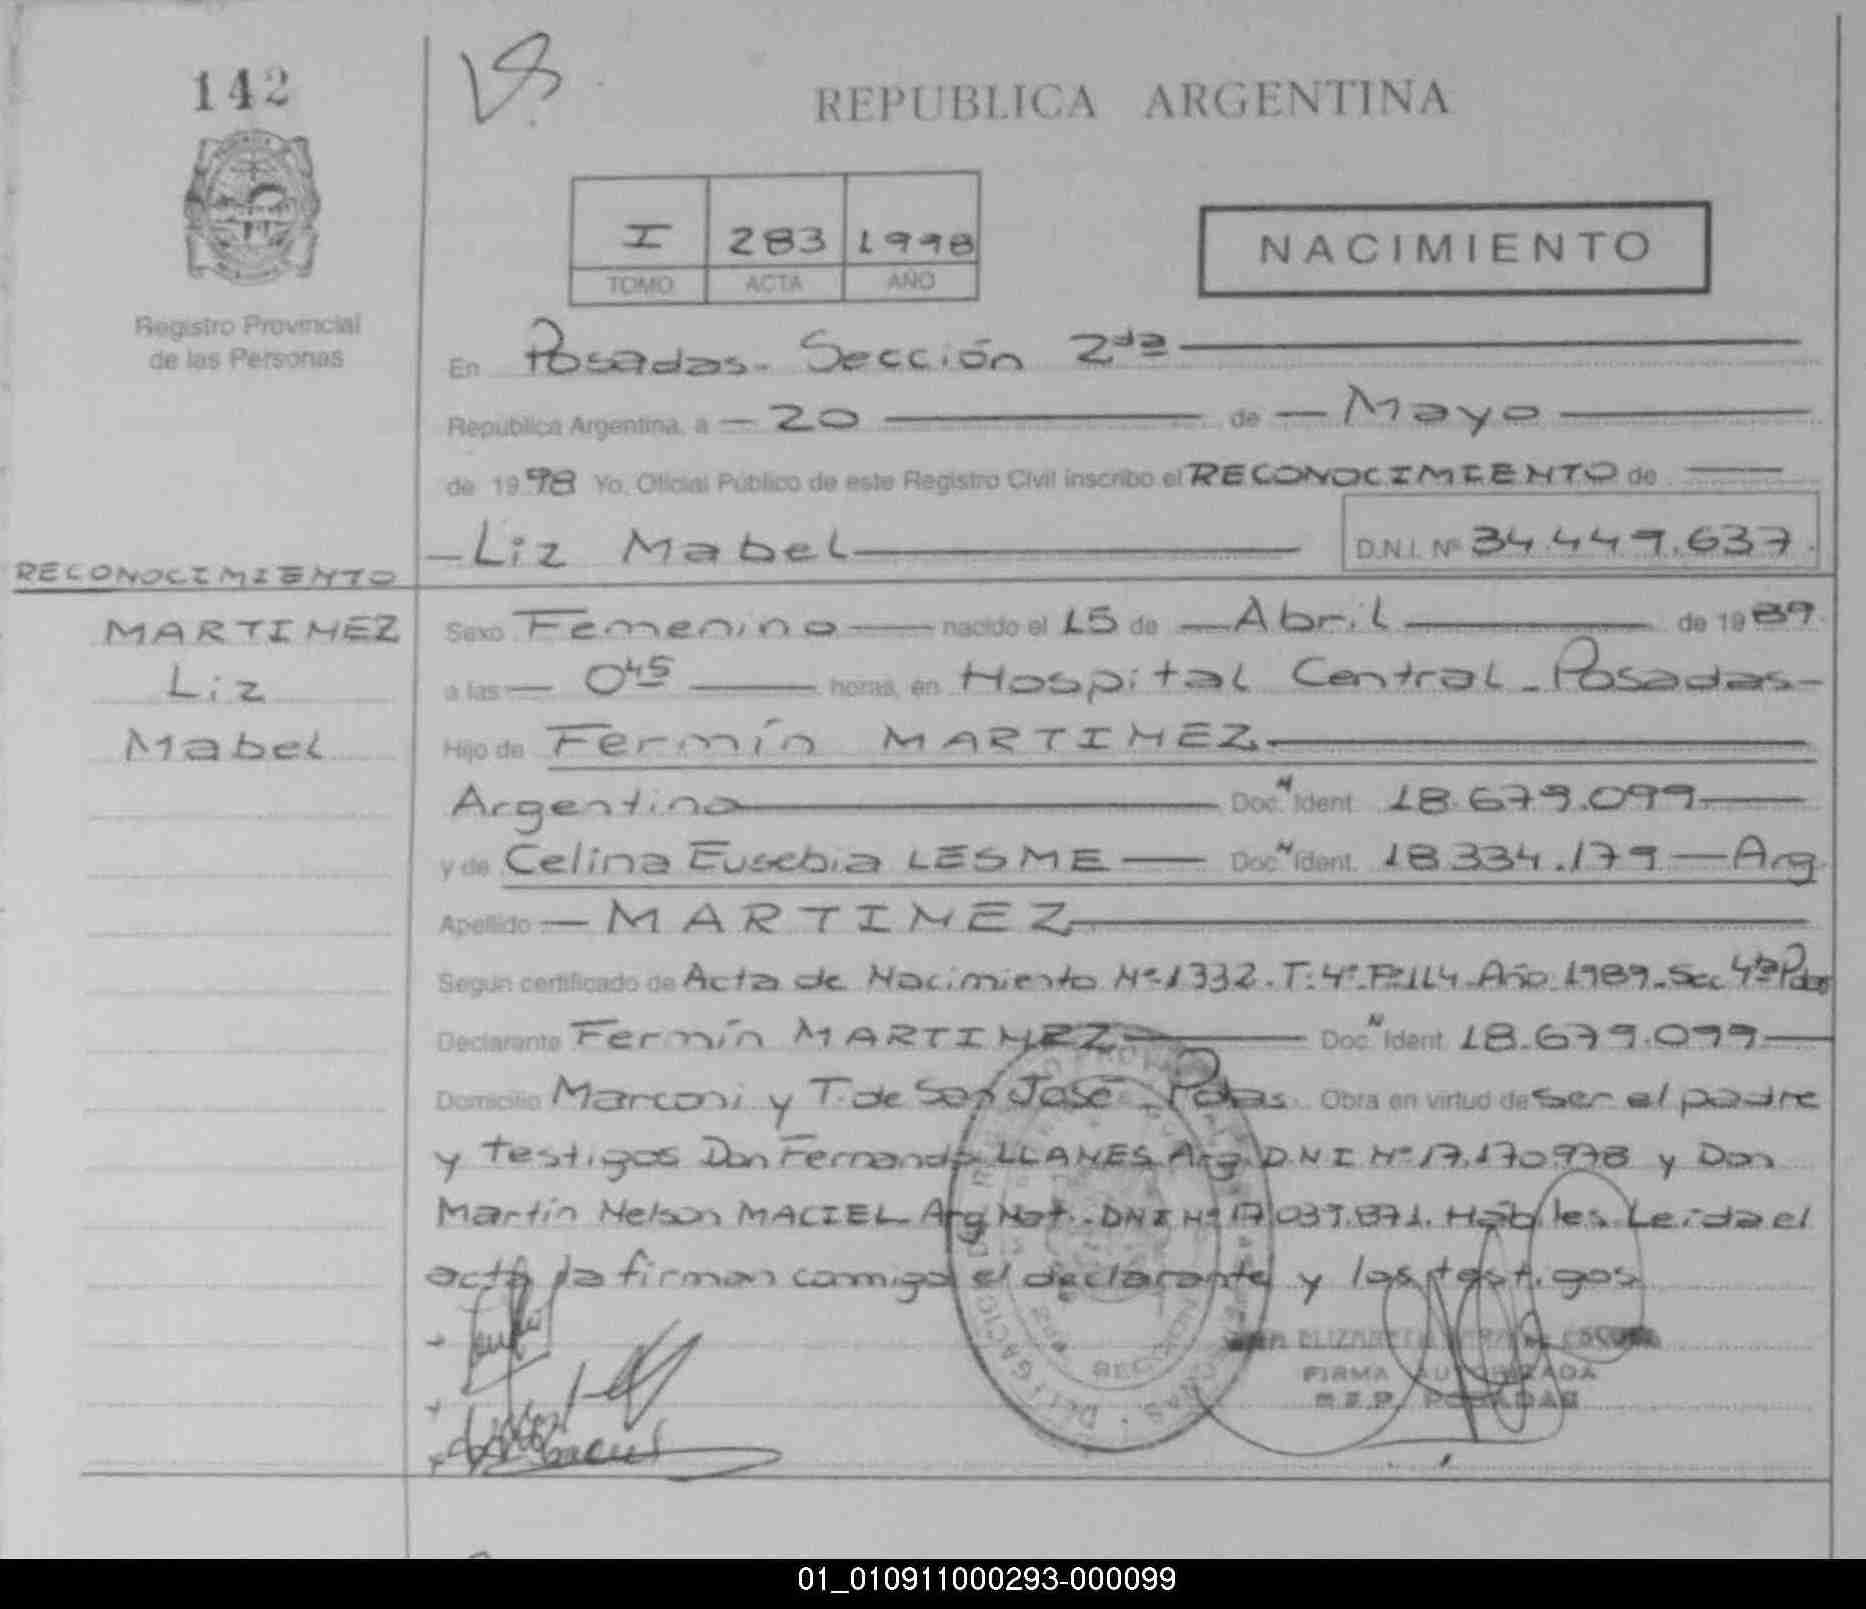 142
REPUBLICA ARGENTINA
I 283 1998
TOMO ACTA AÑO
NACIMIENTO
Registro Provincial
de las Personas
En Posadas - Sección 2da
República Argentina, a - 20 de - Mayo
de 1998 Yo, Oficial Público de este Registro Civil inscribo el RECONOCIMIENTO de
- Liz Mabel D.N.I. Nº 34.449.637.
RECONOCIMIENTO
MARTINEZ
Liz
Mabel
Sexo Femenino nacido el 15 de - Abril de 1989.
a las - 0 45 horas, en Hospital Central - Posadas -
Hijo de Fermín MARTINEZ
Argentino Doc. N Ident. 18.679.099
y de Celina Eusebia LESME Doc. N Ident. 18.334.179 - Arg.
Apellido - MARTINEZ
Según certificado de Acta de Nacimiento Nº 1332. T: 4º Fº 114 Año 1989. Sec 4ta Pdas
Declarante Fermín MARTINEZ Doc. N Ident. 18.679.099
Domicilio Marconi y T. de San José Pdas. Obra en virtud de ser el padre
y testigos Don Fernando LLANES Arg DNI Nº 17.170.978 y Don
Martín Nelson MACIEL Arg Nat. DNI Nº 17.039.871. Hábiles. Leida el
acta la firman conmigo el declarante y los testigos
FIRMA AUTORIZADA
POSADAS
01_010911000293-000099